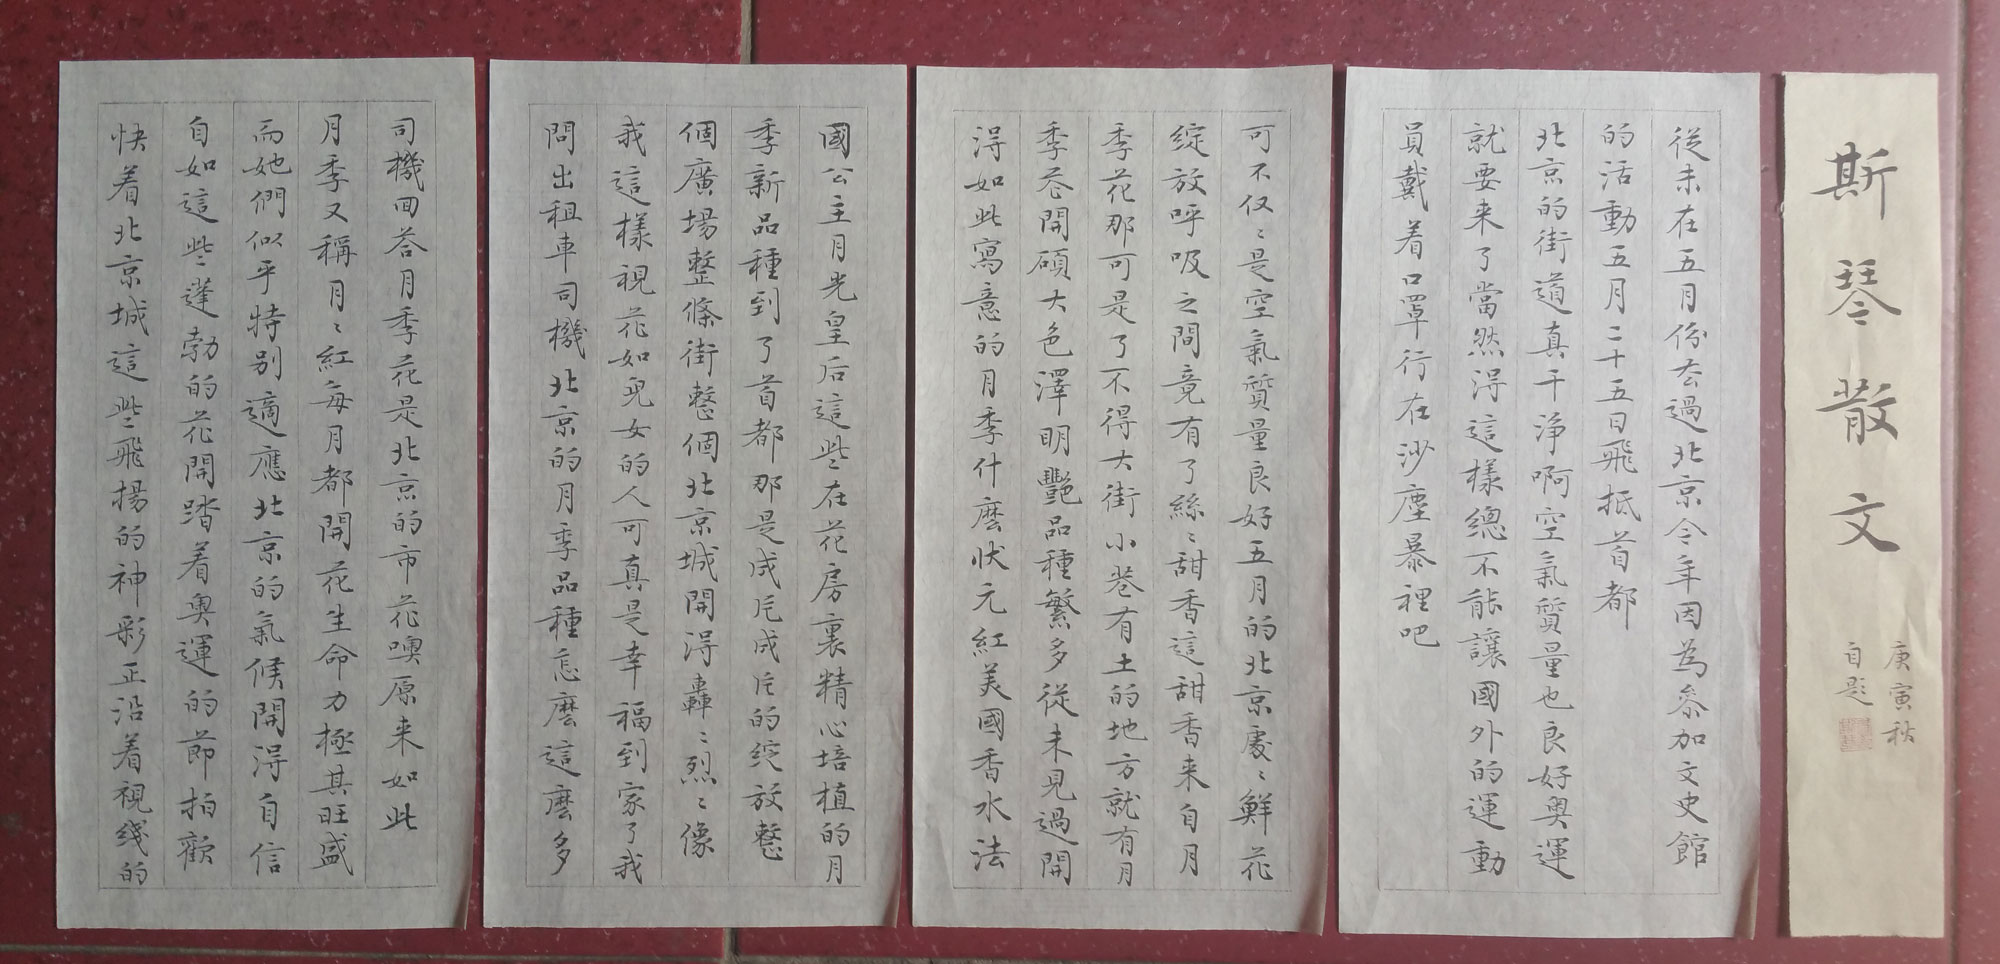 斯琴散文
庚寅秋
自题
從未在五月份去過北京今年因為參加文史館
的活動五月二十五日飛抵首都
北京的街道真干净啊空氣質量也良好奥運
就要来了當然得這樣總不能讓國外的運動
員戴着口罩行在沙塵暴裡吧
可不仅〻是空氣質量良好五月的北京處〻鮮花
綻放呼吸之間竟有了絲〻甜香這甜香来自月
季花那可是了不得大街小巷有土的地方就有月
季花開碩大色澤明艷品種繁多從未見過開
得如此寫意的月季什麽状元紅美國香水法
國公主月光皇后這些在花房裏精心培植的月
季新品種到了首都那是成片成片的綻放整
個廣場整條街整個北京城開得轟〻烈〻像
我這樣視花如兒女的人可真是幸福到家了我
問出租車司機北京的月季品種怎麽這麽多
司機回答月季花是北京的市花噢原来如此
月季又稱月〻紅每月都開花生命力極其旺盛
而她們似乎特别適應北京的氣候開得自信
自如這些蓬勃的花開踏着奥運的節拍歡
快着北京城這些飛揚的神彩正沿着視綫的